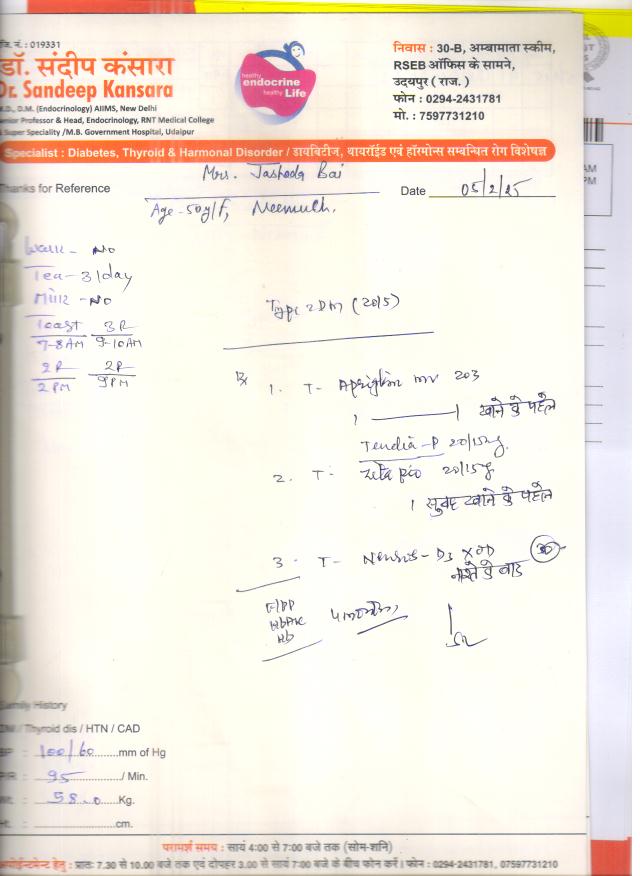 जि. नं. : 019331
डॉ. संदीप कंसारा
Dr. Sandeep Kansara
M.D., D.M. (Endocrinology) AIIMS, New Delhi
Senior Professor & Head, Endocrinology, RNT Medical College
& Super Speciality /M.B. Government Hospital, Udaipur
healthy
endocrine
healthy Life
निवास : 30-B, अम्बामाता स्कीम,
RSEB ऑफिस के सामने,
उदयपुर ( राज. )
फोन : 0294-2431781
मो. : 7597731210
Specialist : Diabetes, Thyroid & Harmonal Disorder / डायबिटीज, थायरॉईड एवं हॉरमोन्स सम्बन्धित रोग विशेषज्ञ
Thanks for Reference
Mrs. Jashoda Bai
Date 05/2/25
Age - 50y/F, Neemuch.
Walk - NO
Tea - 3/day
Milk - NO
3R
7-8AM 9-10AM
2R 2R
2PM 9PM
Type 2DM (2015)
Rx
1. T- mv 203
1 ——— 1 खाने के पहले
Tendia-P 20/15mg.
2. T- Zita pio 20/15mg
1 सुबह खाने के पहले
3. T- D3 X OD 30
नाश्ते के बाद
F/PP
HbA1c
Hb
4 months
Family History
DM / Thyroid dis / HTN / CAD
BP : 100/60 mm of Hg
P/R : 95 / Min.
Wt. : 58.0 Kg.
Ht. : cm.
परामर्श समय : सायं 4:00 से 7:00 बजे तक (सोम-शनि)
अपोईन्टमेन्ट हेतु : प्रातः 7.30 से 10.00 बजे तक एवं दोपहर 3.00 से सायं 7:00 बजे के बीच फोन करें। फोन : 0294-2431781, 07597731210
AM
PM